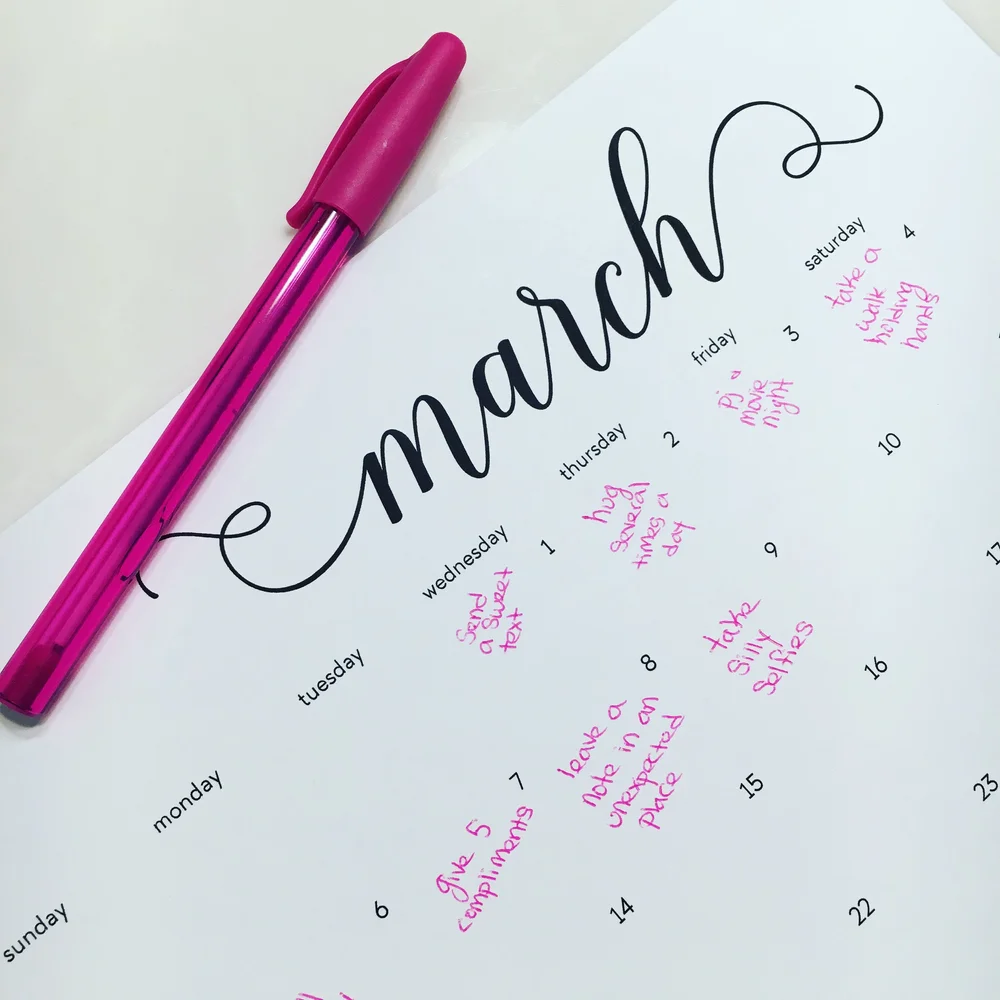 march
sunday
monday
tuesday
wednesday
thursday
friday
saturday
1
Send
a Sweet
text
2
hug
Several
times a
day
3
Pj
movie
night
4
take a
walk
holding
hands
6
7
give 5
compliments
8
leave a
note in an
unexpected
place
9
take
Silly
Selfies
10
14
15
16
17
22
23